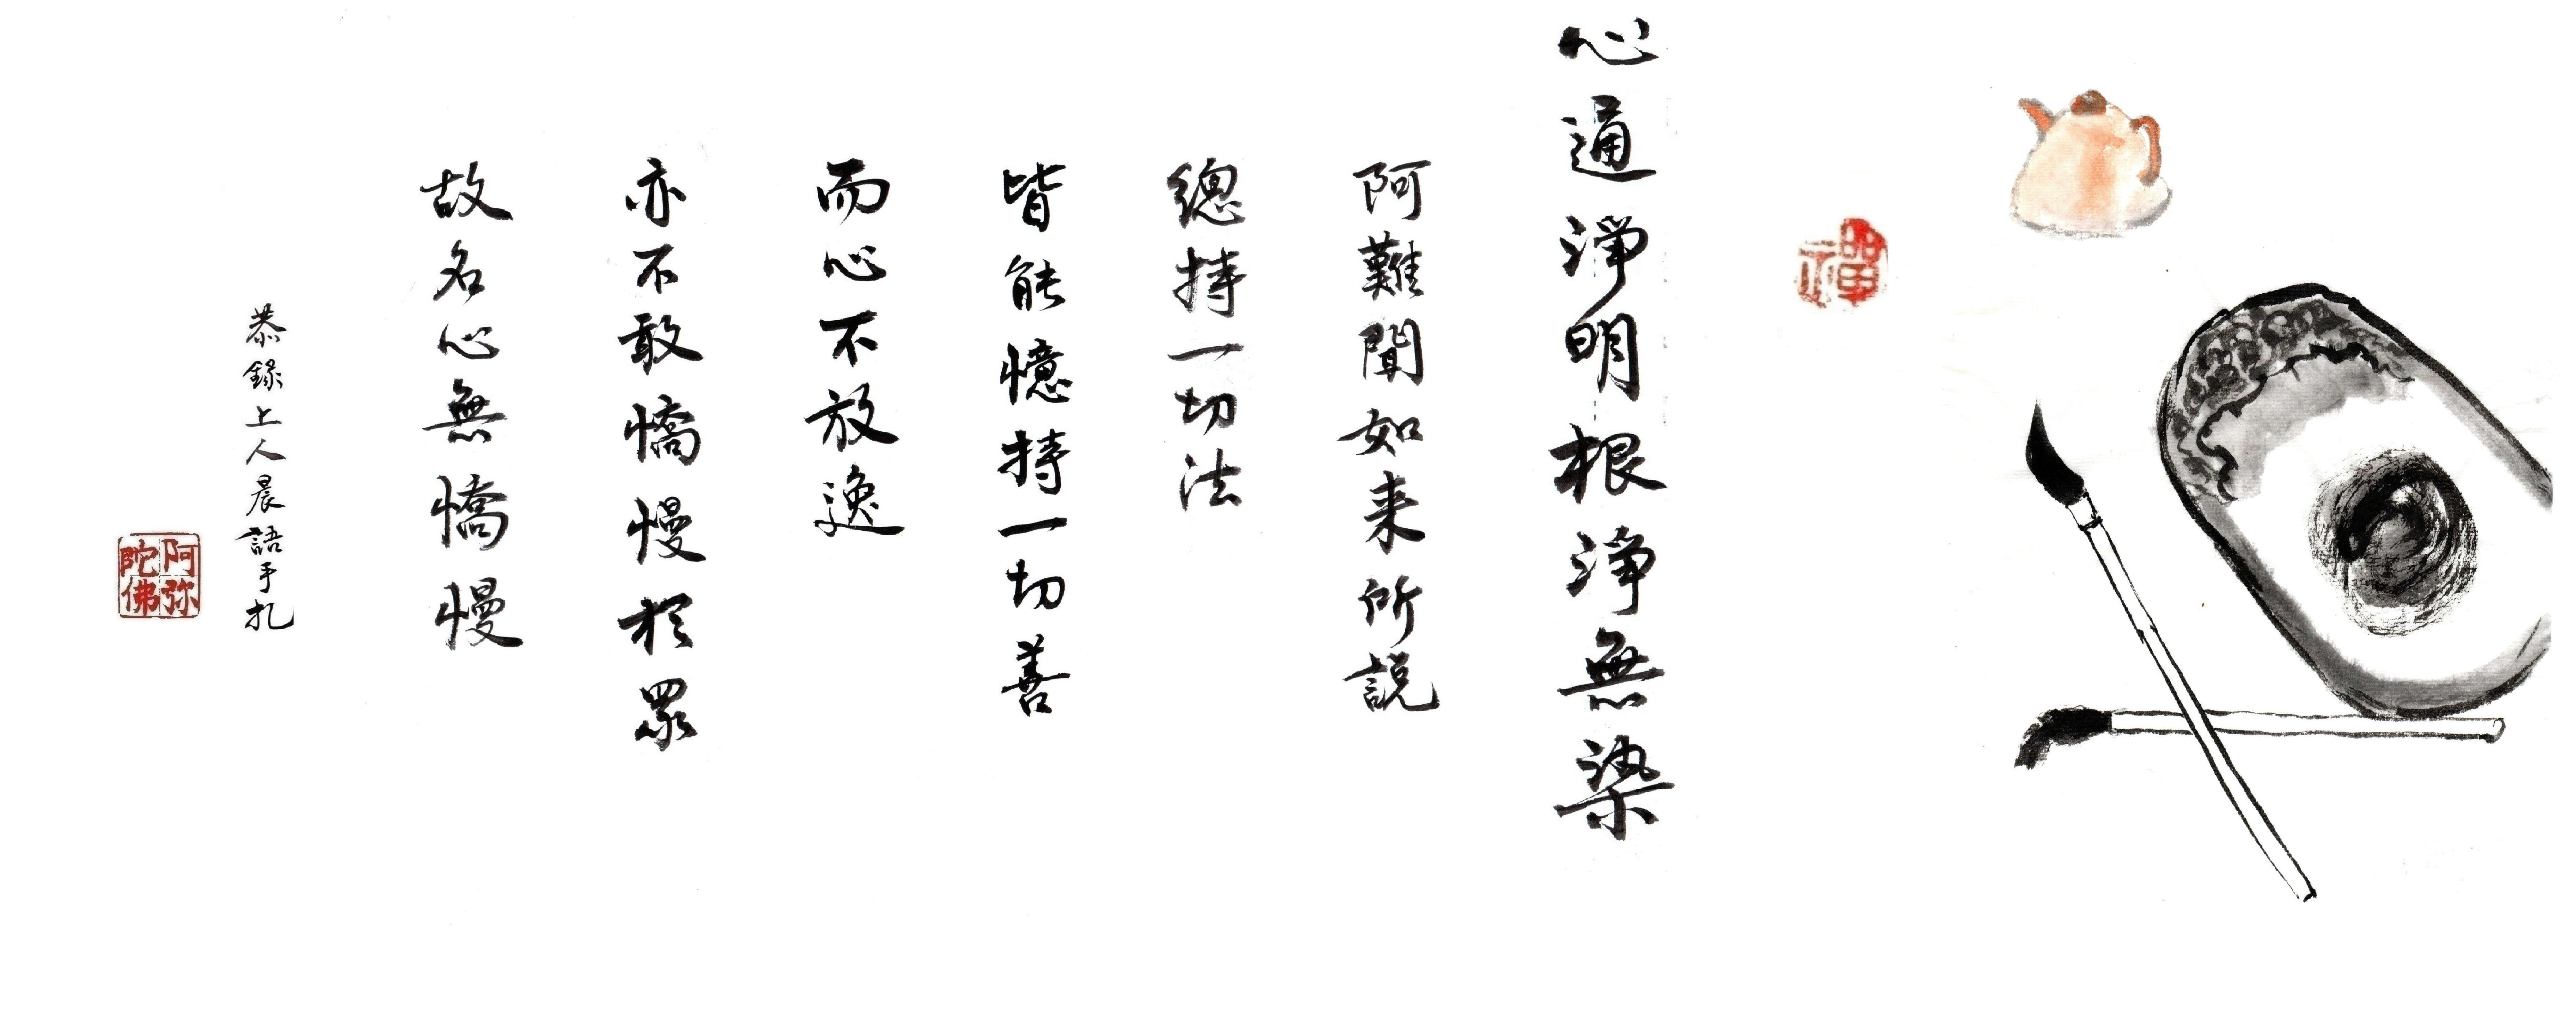 禪
心通淨明根淨無染
阿難聞如来所説
總持一切法
皆能憶持一切善
而心不放逸
亦不敢憍慢於眾
故名心無憍慢
恭錄上人晨語手札
阿弥陀佛